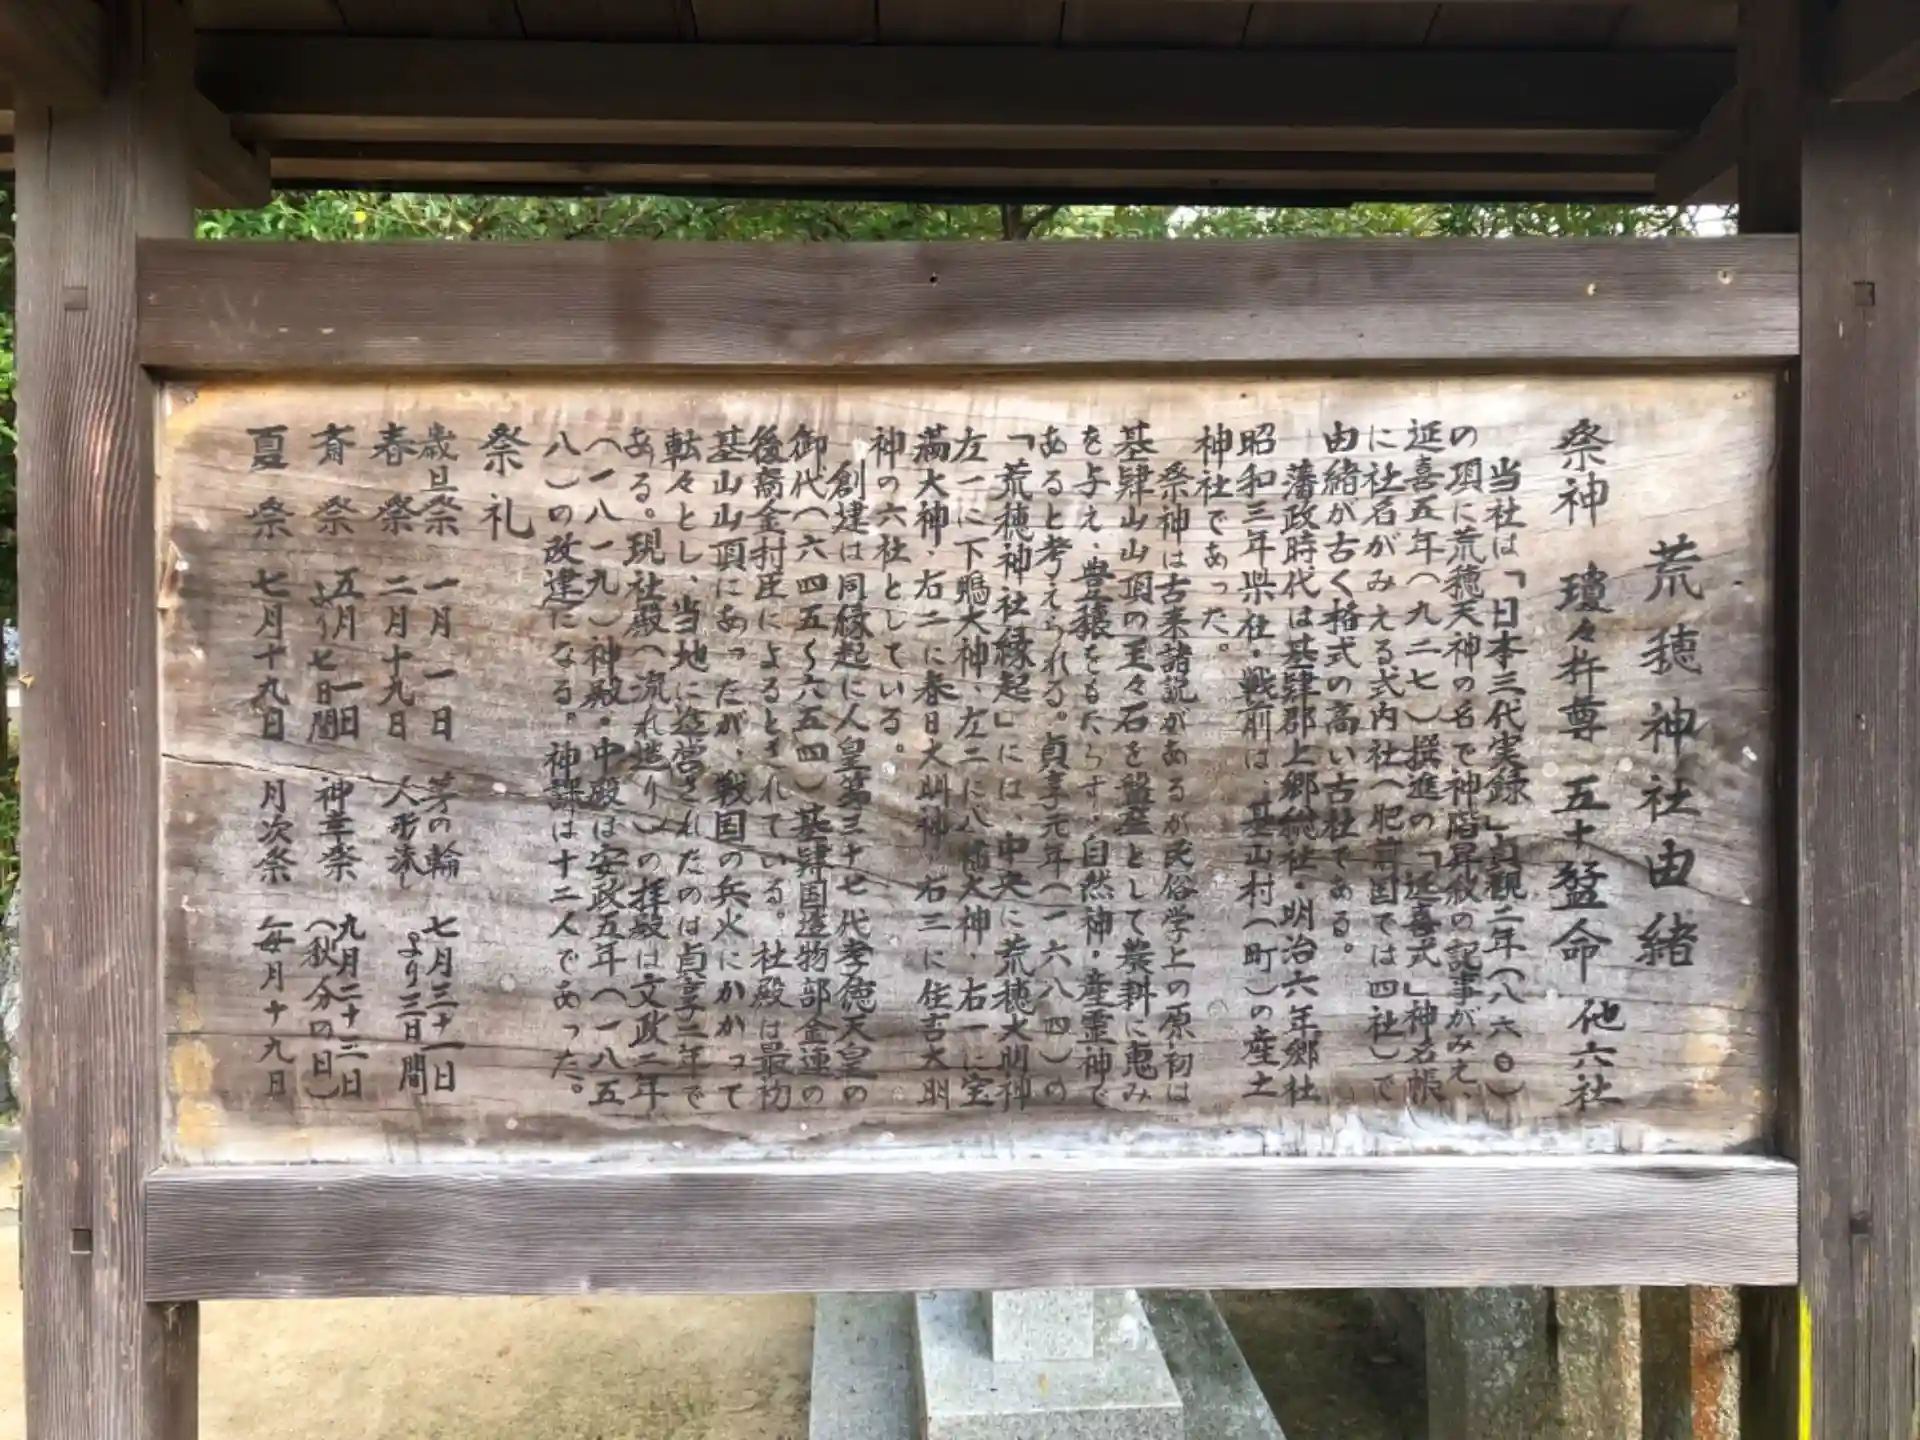 荒穂神社由緒
祭神 瓊々杵尊 五十盤命 他六社
当社は「日本三代実録」貞観二年(八六〇)
の項に荒穂天神の名で神階昇叙の記事がみえ、
延喜五年(九二七)撰進の「延喜式」神名帳
に社名がみえる式内社(肥前国では四社)で
由緒が古く格式の高い古社である。
藩政時代は基肄郡上郷総社・明治六年郷社
昭和三年県社・戦前は、基山村(町)の産土
神社であった。
祭神は古来諸説があるが民俗学上の原初は
基肄山山頂の玉々石を盤座として農耕に恵み
を与え、豊穣をもたらす、自然神・産霊神で
あると考えられる。貞享元年(一六八四)の
「荒穂神社縁起」には、中央に荒穂大明神
左一に下鴨大神、左二に八幡大神、右一に宝
満大神、右二に春日大明神、右三に住吉大明
神の六社としている。
創建は同縁起に人皇第三十七代孝徳天皇の
御代(六四五〜六五四)基肄国造物部金連の
後裔金村臣によるとされている。社殿は最初
基山山頂にあったが、戦国の兵火にかかって
転々とし、当地に造営されたのは貞享二年で
ある。現社殿(流れ造り)の拝殿は文政二年
(一八一九)神殿・中殿は安政五年(一八五
八)の改建になる。神課は十二人であった。
祭礼
歳旦祭 一月一日 芳の輪 七月三十一日
春祭 二月十九日 人形流し より三日間
斉祭 五月一日より七日間 神幸祭 九月二十三日(秋分の日)
夏祭 七月十九日 月次祭 毎月十九日